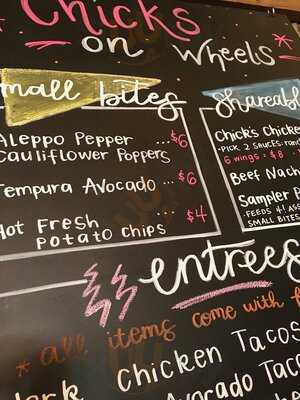 Chicks
on Wheels
mall bites
Aleppo Pepper ... $6
Cauliflower Poppers
Tempura Avocado ... $6
Hot Fresh
potato chips ... $4
Shareabl
Chick's Chicke
-PICK 2 SAUCES:
6 wings = $8
Beef Nach
Sampler
-FEEDS 4!
SMALL BITES
entrees
* all items come with
Jerk Chicken Tacos
Avocado Taco